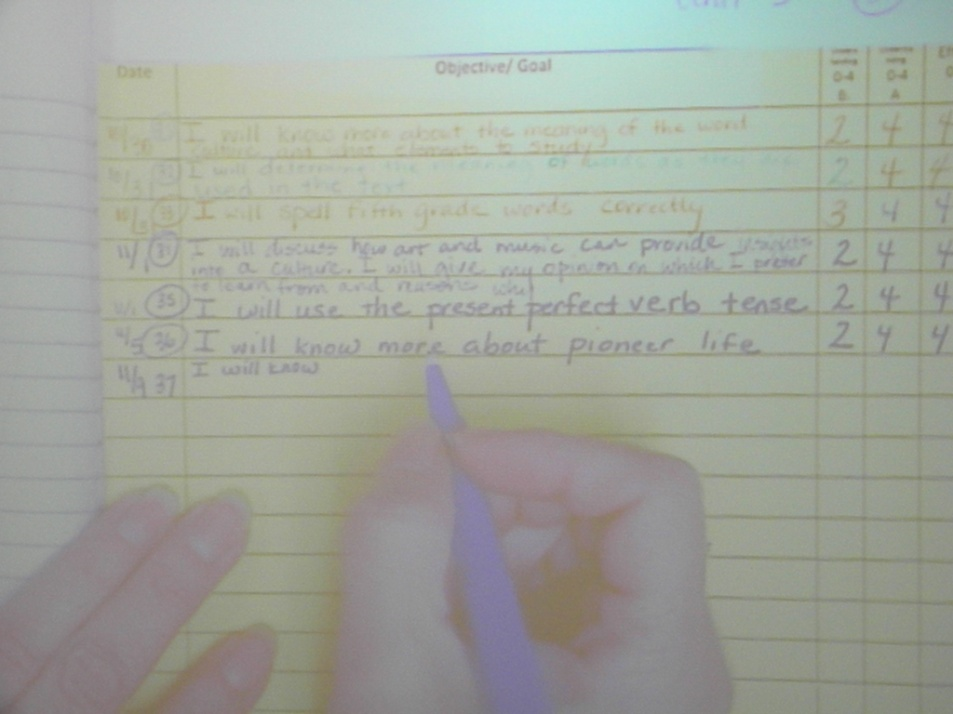 Unit 3
Date Objective/ Goal 0-4 0-4
B A
10/30 I will know more about the meaning of the word 2 4 4
culture and what elements to study
10/31 I will determine the meaning of words as they are 2 4 4
used in the text
I will spell fifth grade words correctly 3 4 4
11/ I will discuss how art and music can provide 2 4 4
into a culture. I will give my opinion on which I prefer
to learn from and reasons why
35 I will use the present perfect verb tense 2 4 4
11/5 36 I will know more about pioneer life 2 4 4
11/9 37 I will know